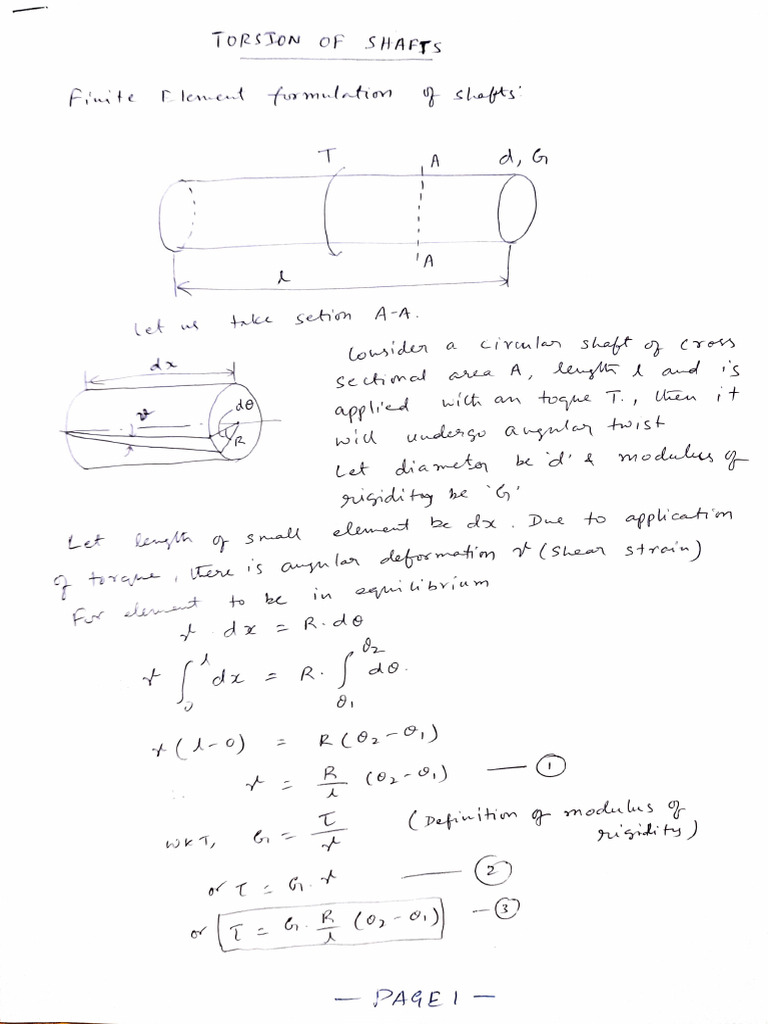 TORSION OF SHAFTS
Finite Element formulation of shafts:
T
A
d, G
A
l
Let us take setion A-A.
dx
γ
dθ
R
Consider a circular shaft of cross
sectional area A, length l and is
applied with an toque T., then it
will undergo angular twist
Let diameter be 'd' & modulus of
rigidity be 'G'
Let length of small element be dx. Due to application
of torque, there is angular deformation γ (shear strain)
For element to be in equilibrium
γ dx = R. dθ
γ ∫₀ˡ dx = R. ∫_θ₁^θ₂ dθ.
γ (l-0) = R(θ₂-θ₁)
∴ γ = R/l (θ₂-θ₁) — ①
WKT, G = τ/γ (Definition of modulus of
rigidity)
or τ = G. γ — ②
or τ = G. R/l (θ₂-θ₁) — ③
— PAGE 1 —